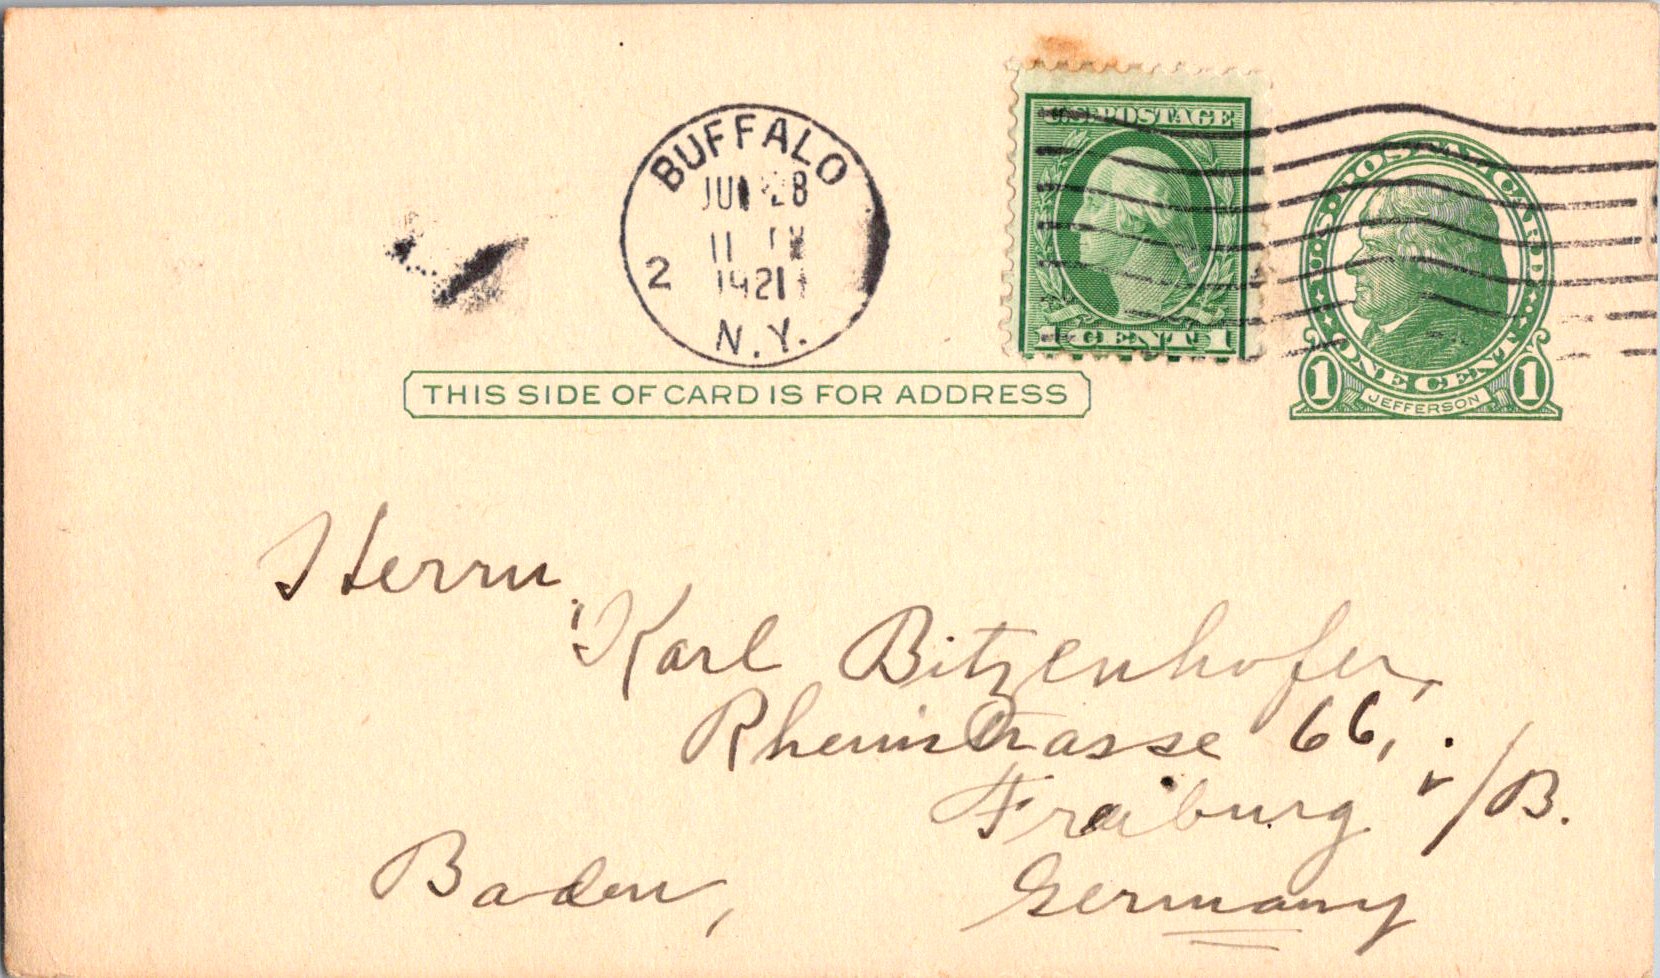 BUFFALO
JUN 28
11
1921
2
N.Y.
U.S. POSTAGE
1 CENT 1
U.S. POSTAL CARD
1 ONE CENT 1
JEFFERSON
THIS SIDE OF CARD IS FOR ADDRESS
Herrn
Karl Bitzenhofer,
Rheinstrasse 66,
Fraiburg i/B.
Baden,
Germany